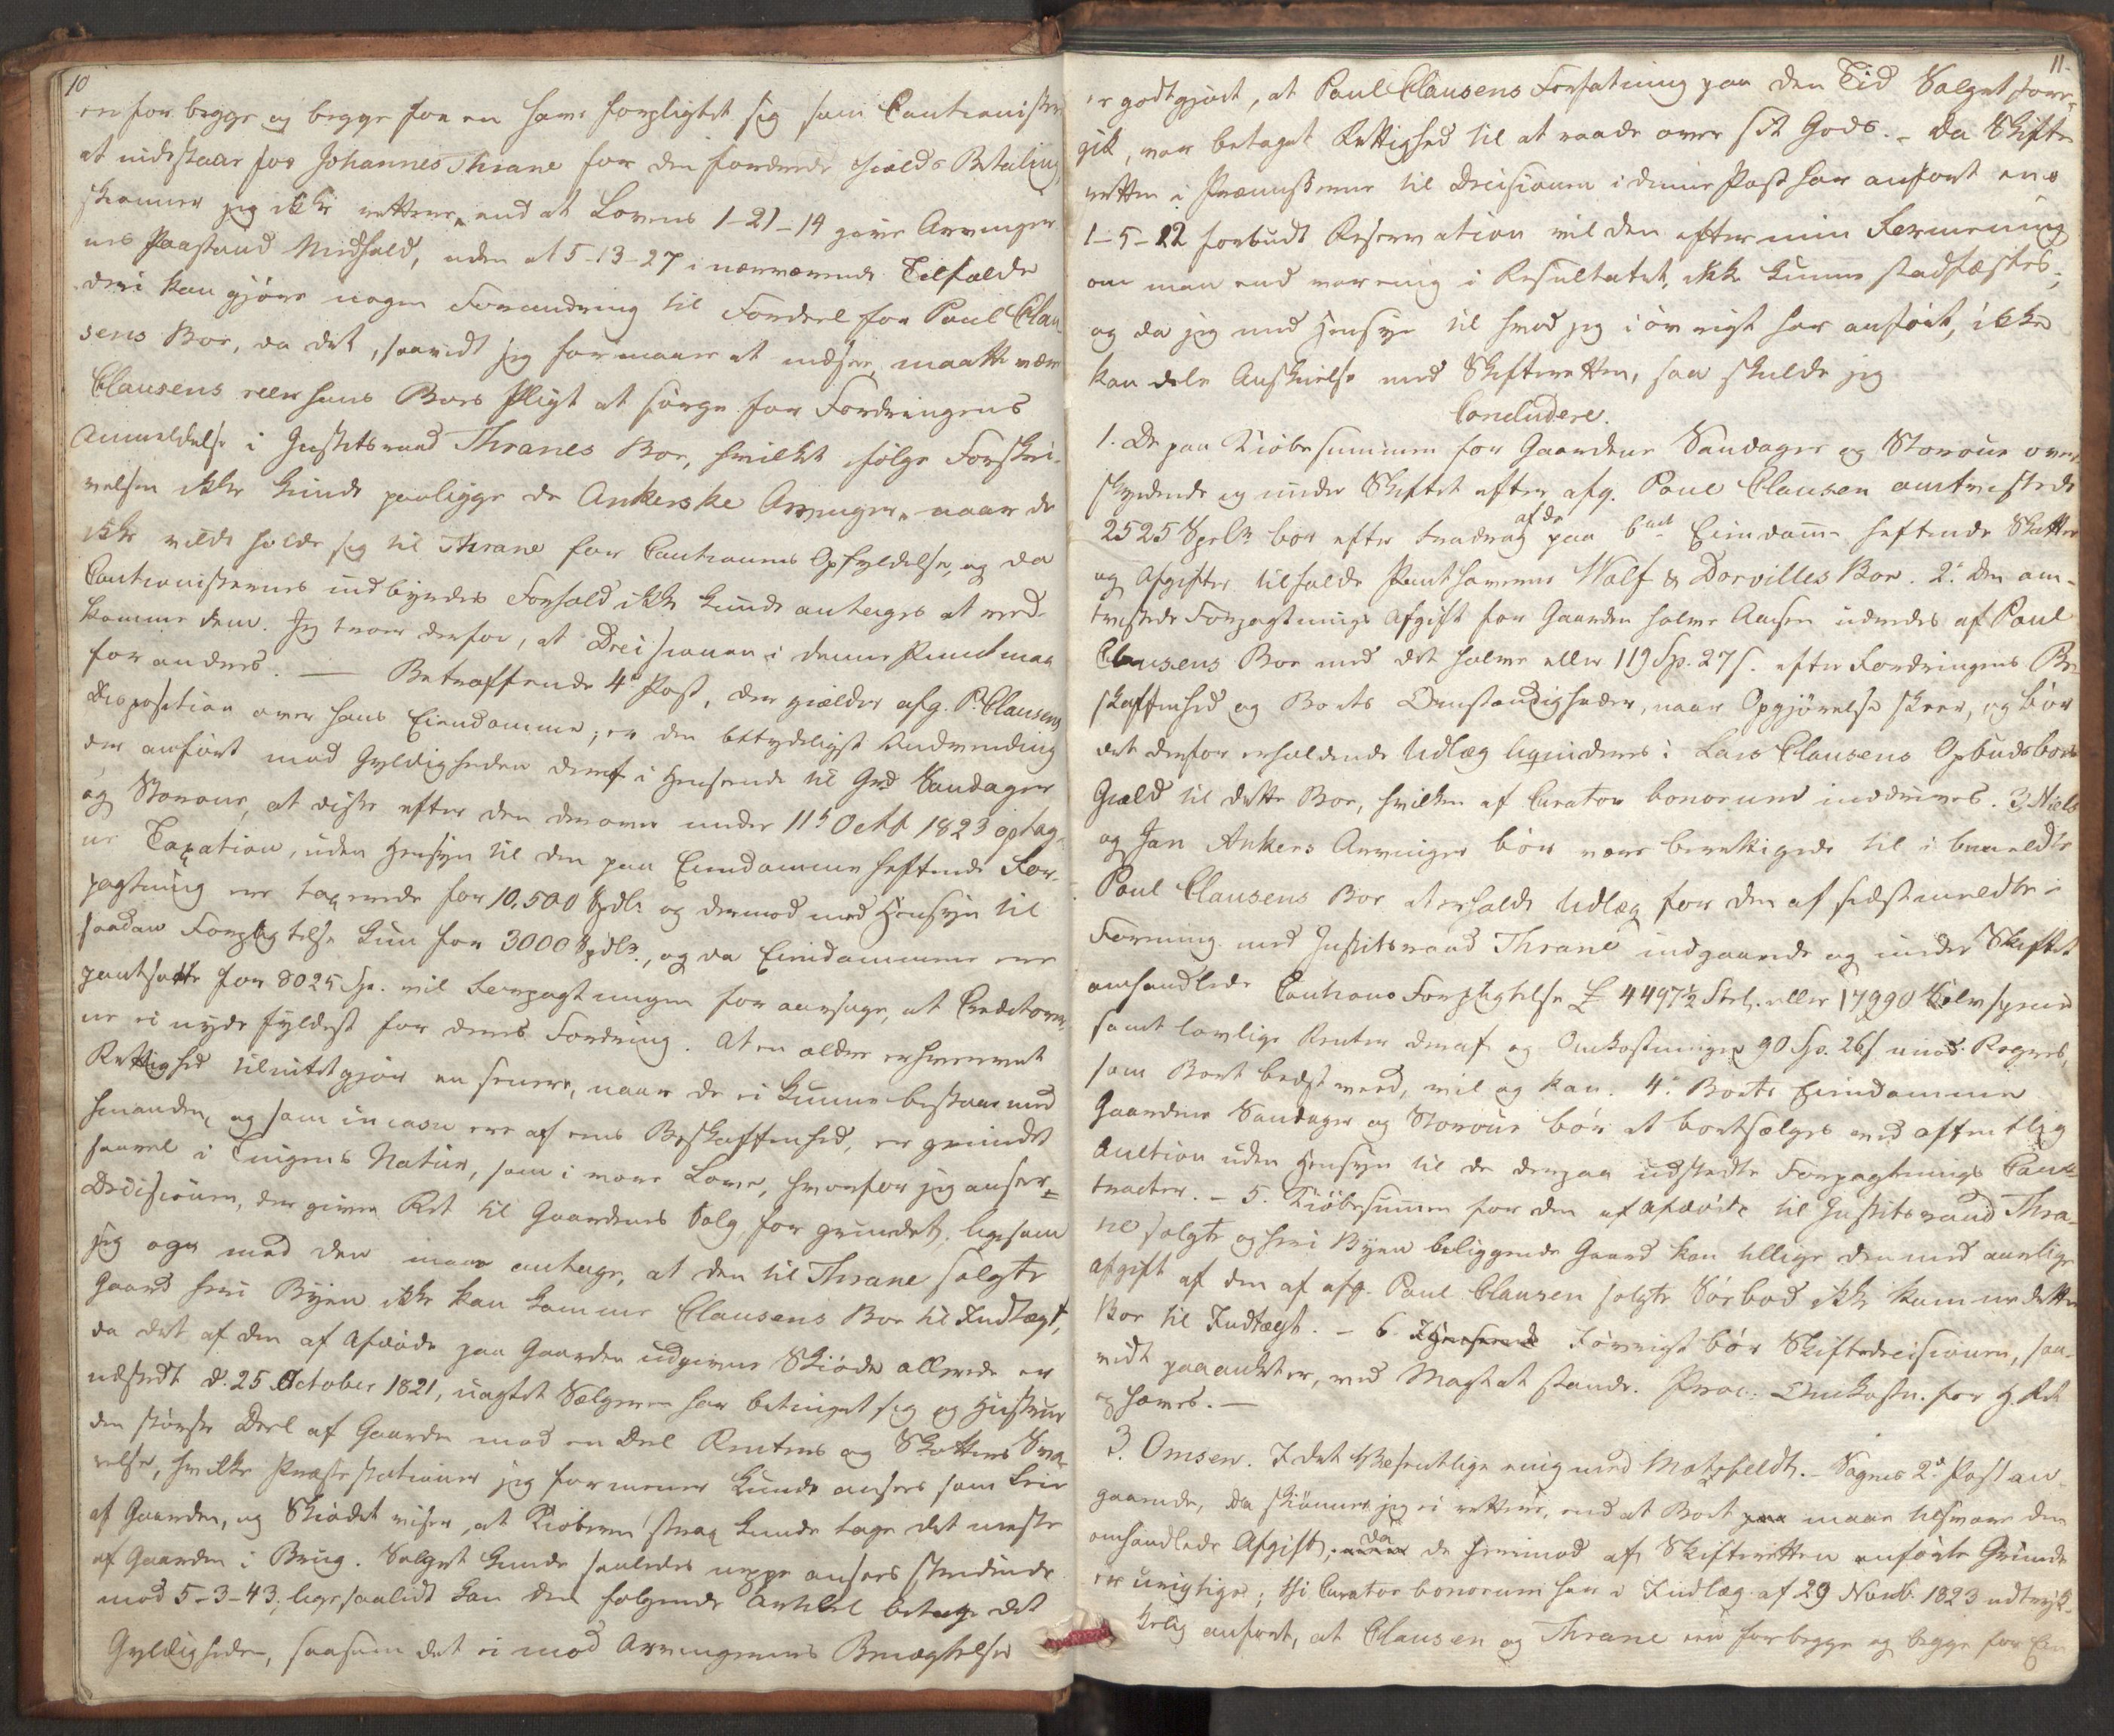 10
en for begge og begge for en have forpligtet sig som Cautionister
at indestaae for Johannes Thrane for den fordrede Gjælds Betaling,
skjønner jeg ikke rettere, end at Lovens 1-21-14 giver Arvinger-
nes Paastand Medhold, uden at 5-13-27 i nærværende Tilfælde
deri kan gjøre nogen Forandring til Fordeel for Paul Clau-
sens Boe, da det, saavidt jeg formaaer at indsee, maatte være
Clausens eller hans Boes Pligt at sørge for Fordringens
Anmeldelse i Justitsraad Thranes Boe, hvilket ifølge Forskri-
velsen ikke kunde paaligge de Ankerske Arvinger, naar de
ikke vilde holde sig til Thrane for Cautionens Opfyldelse, og da
Cautionisternes indbyrdes Forhold ikke kunde antages at ved-
komme dem. Jeg troer derfor, at Decisionen i denne Punct maa
forandres. — Betræffende 4de Post, der gjælder afg. P. Clausens
Disposition over hans Eiendomme, er den betydeligste Indvending
der anført mod Gyldigheden deraf i Henseende til Grd Sandager
og Storøen, at disse efter den derover under 11te Octb 1823 optag-
ne Taxation, uden Hensyn til den paa Eiendommene heftende For-
pagtning ere taxerede for 10,500 Spdlr og dermod med Hensyn til
saadan Forpligtelse kun for 3000 Spdlr., og da Eiendommene ere
pantsatte for 8025 Sp. vil Forpagtningen foraarsage, at Creditorer-
ne ei nyde Fyldest for deres Fordring. At en ældre erhvervet
Rettighed tilintetgjør en senere, naar de ei kunne bestaae med
hinanden, og som in casu ere af eens Beskaffenhed, er grundet
saavel i Tingens Natur, som i vore Love, hvorfor jeg anseer
Decisionen, der giver Ret til Gaardenes Salg for grundet, ligesom
jeg ogsaa med den maae antage, at den til Thrane solgte
Gaard her i Byen ikke kan komme Clausens Boe til Indtægt,
da det af den af Afdøde paa Gaarden udgivne Skiøde allerede er
udstedt d. 25 October 1821, uagtet Sælgeren har betinget sig og Hustrue
den største Deel af Gaarden mod en Deel Renters og Skatters Sva-
relse, hvilke Præstationer jeg formener kunde ansees som Leie
af Gaarden, og Skiødet viser, at Kiøberen strax kunde tage det meste
af Gaarden i Brug. Salget kunde saaledes neppe ansees stridende
mod 5-3-43, ligesaalidt kan den følgende Artikel betage det
Gyldigheden, saasom det ei mod Arvingernes Benægtelse
11.
er godtgjort, at Paul Clausens Forfatning paa den Tid Salget fore-
gik, var betaget Rettighed til at raade over sit Gods. – Da Skifte-
retten i Præmisserne til Decisionen i denne Post har anført en
1-5-22 forbudt Reservation vil den efter min Formening
om man end var enig i Resultatet, ikke kunne stadfæstes,
og da jeg med Hensyn til hvad jeg iøvrigt har anført, ikke
kan dele Anskuelse med Skifteretten, saa skulde jeg
Concludere.
1. De paa Kiøbesummen for Gaardene Sandager og Storøen over-
skydende og under Skiftet efter afg. Poul Clausen omtvistede
2525 Spdlr bør efter Fradrag af de paa bete Eiendomme heftende Skatter
og Afgifter tilfalde Panthaverne Wolf & Dorvilles Boe. 2. Den om-
tvistede Forpagtnings Afgift for Gaarden halve Aasen udredes af Paul
Clausens Boe med det halve eller 119 Sp. 27 s. efter Fordringens Be-
skaffenhed og Boets Omstændigheder, naar Opgjørelse skeer, og bør
det derfor erholdende Udlæg liquideres i Lars Clausens Opbudsboes
Gjæld til dette Boe, hvilken af Curator bonorum inddrives. 3. Niels
og Jan Ankers Arvinger bør være berettigede til i bemeldte
Paul Clausens Boe at erholde Udlæg for den af sidstmeldte i
Forening med Justitsraad Thrane indgaaede og under Skiftet
omhandlede Cautions Forpligtelse £ 4497½ Sterl. eller 17990 Sølvspecie
samt lovlige Renter deraf og Omkostninger 90 Sp. 26 s. mod Regres,
som Boet bedst veed, vil og kan. 4. Boets Eiendomme
Gaardene Sandager og Storøen bør at bortsælges ved offentlig
Auction uden Hensyn til de derpaa udstedte Forpagtnings Con-
tracter. – 5. Kiøbesummen for den af Afdøde til Justitsraad Thra-
ne solgte og her i Byen beliggende Gaard kan tillige den med aarlige
Afgift af den af afg. Paul Clausen solgte Sørbod ikke komme dette
Boe til Indtægt. – 6. I Henseende Iøvrigt bør Skiftedecisionen, saa-
vidt paaanket er, ved Magt at stande. Proc. Omkostn. for H. Ret
ophæves. –
3. Omsen. I det Væsentlige enig med Motzfeldt. – Sagens 2den Post an-
gaaende, da skiønner jeg ei rettere, end at Boet maae tilsvare den
omhandlede Afgift, da de hermod af Skifteretten anførte Grunde
er urigtige; thi Curator bonorum har i Indlæg af 29 Novb. 1823 udtryk-
kelig anført, at Clausen og Thrane een for begge og begge for Een